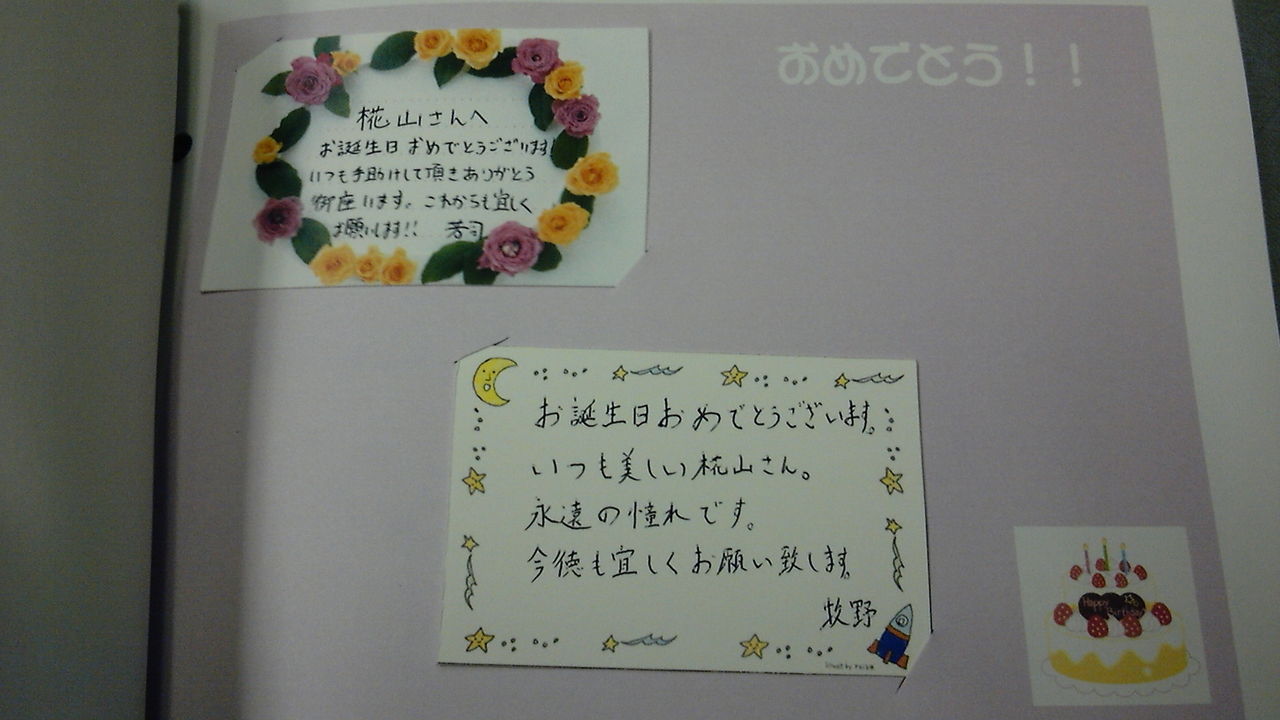 おめでとう！！
椛山さんへ
お誕生日おめでとうございます!
いつも手助けして頂きありがとう
御座います。これからも宜しく
お願いします!! 芳司
お誕生日おめでとうございます。
いつも美しい椛山さん。
永遠の憧れです。
今後も宜しくお願い致します。
牧野
Happy Birthday